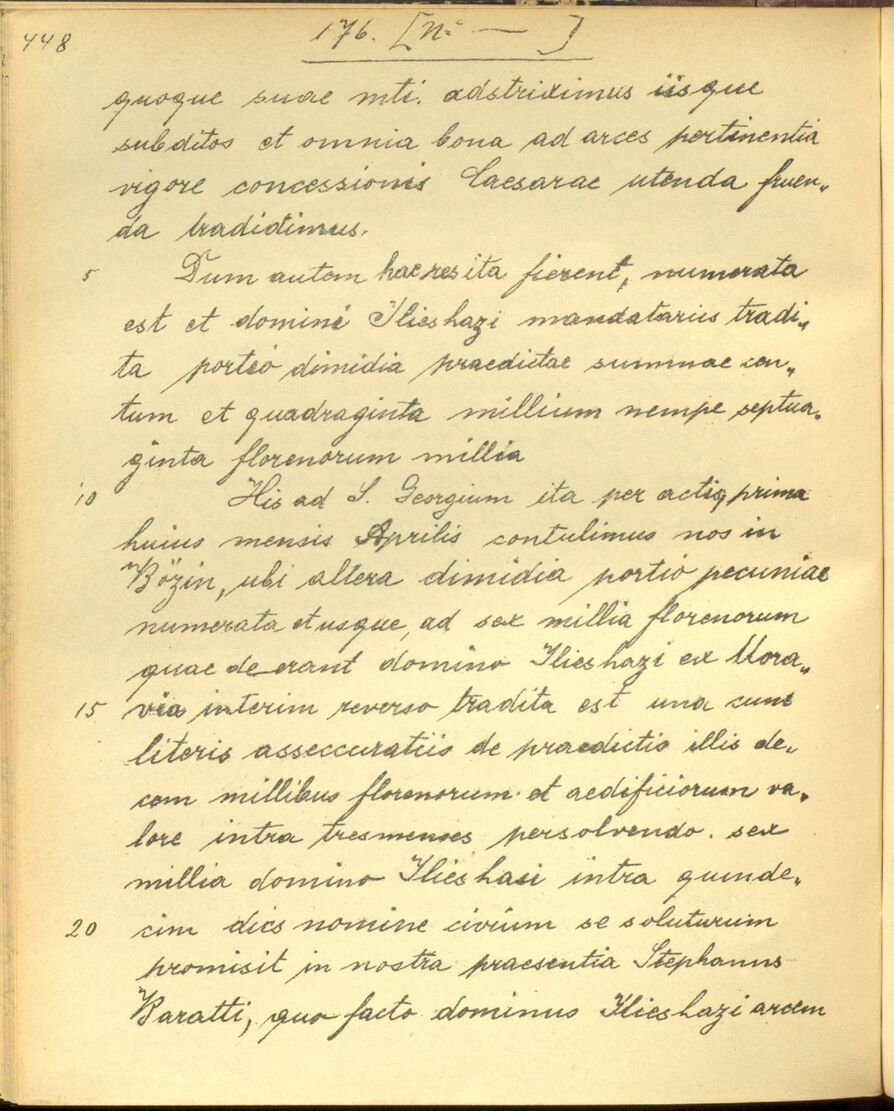 448
176. [Nº — ]
quoque suae mti. adstriximus iisque
subditos et omnia bona ad arces pertinentia
vigore concessionis Caesarae utenda fruen„
da tradidimus.
5 Dum autem hae res ita fierent, numerata
est et domini Ilieshazi mandatariis tradi„
ta portio dimidia praedictae summae cen„
tum et quadraginta millium nempe septua„
ginta florenorum millia
10 His ad S. Georgium ita per actis, prima
huius mensis Aprilis contulimus nos in
Bözin, ubi altera dimidia portio pecuniae
numerata et usque, ad sex millia florenorum
quae de erant domino Ilieshazi ex Mora„
15 via interim reverso tradita est una cum
literis asseccuratiis de praedictis illis de„
cem millibus florenorum et aedificiorum va„
lore intra tres menses persolvendo. sex
millia domino Ilieshasi intra quinde„
20 cim dies nomine civium se soluturum
promisit in nostra praesentia Stephanus
Baratti, quo facto dominus Ilieshazi arcem